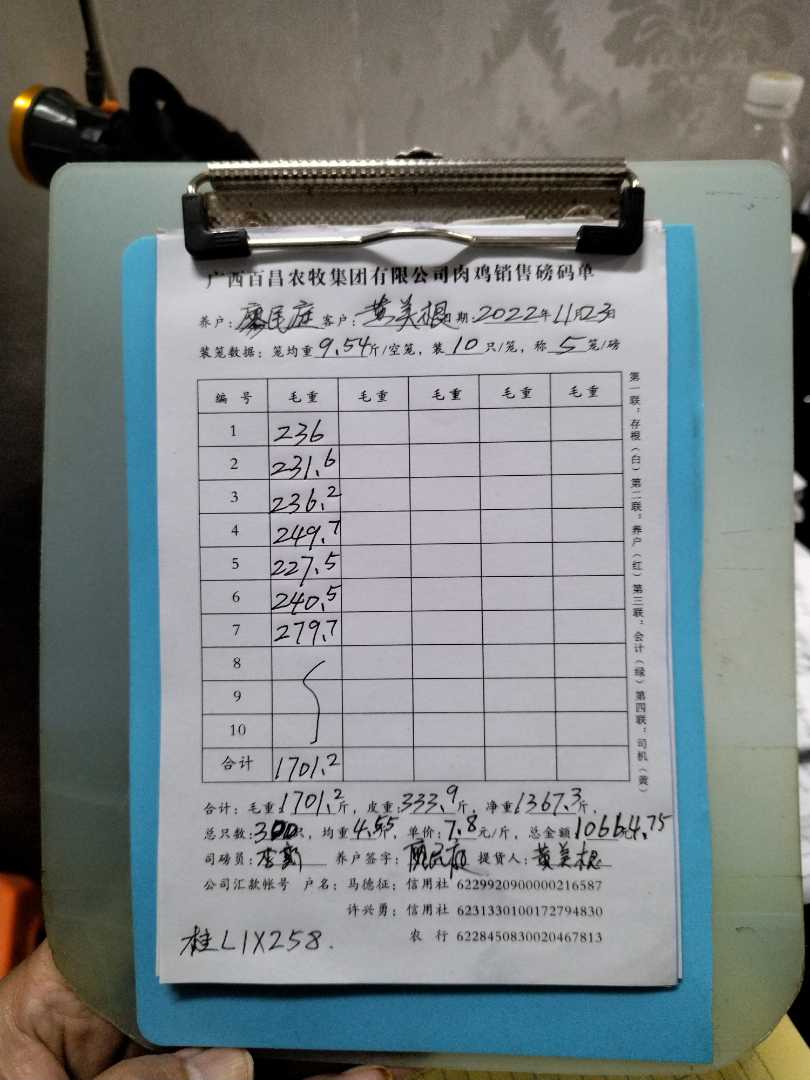 广西百昌农牧集团有限公司肉鸡销售磅码单
养户：廖民庭 客户：黄美根 日期：2022年11月23日
装笼数据：笼均重9.54斤/空笼，装10只/笼，称5笼/磅
编 号 毛重 毛重 毛重 毛重 毛重
1 236
2 231.6
3 236.2
4 249.7
5 227.5
6 240.5
7 279.7
8
9
10
合计 1701.2
合计：毛重：1701.2斤，皮重：333.9斤，净重：1367.3斤，
总只数：300只，均重4.55斤，单价：7.8元/斤，总金额10664.75
司磅员：李 养户签字：廖民庭 提货人：黄美根
公司汇款帐号 户名：马德征；信用社 6229920900000216587
许兴勇；信用社 6231330100172794830
农 行 6228450830020467813
桂L1X258.
第一联：存根（白）第二联：养户（红）第三联：会计（绿）第四联：司机（黄）